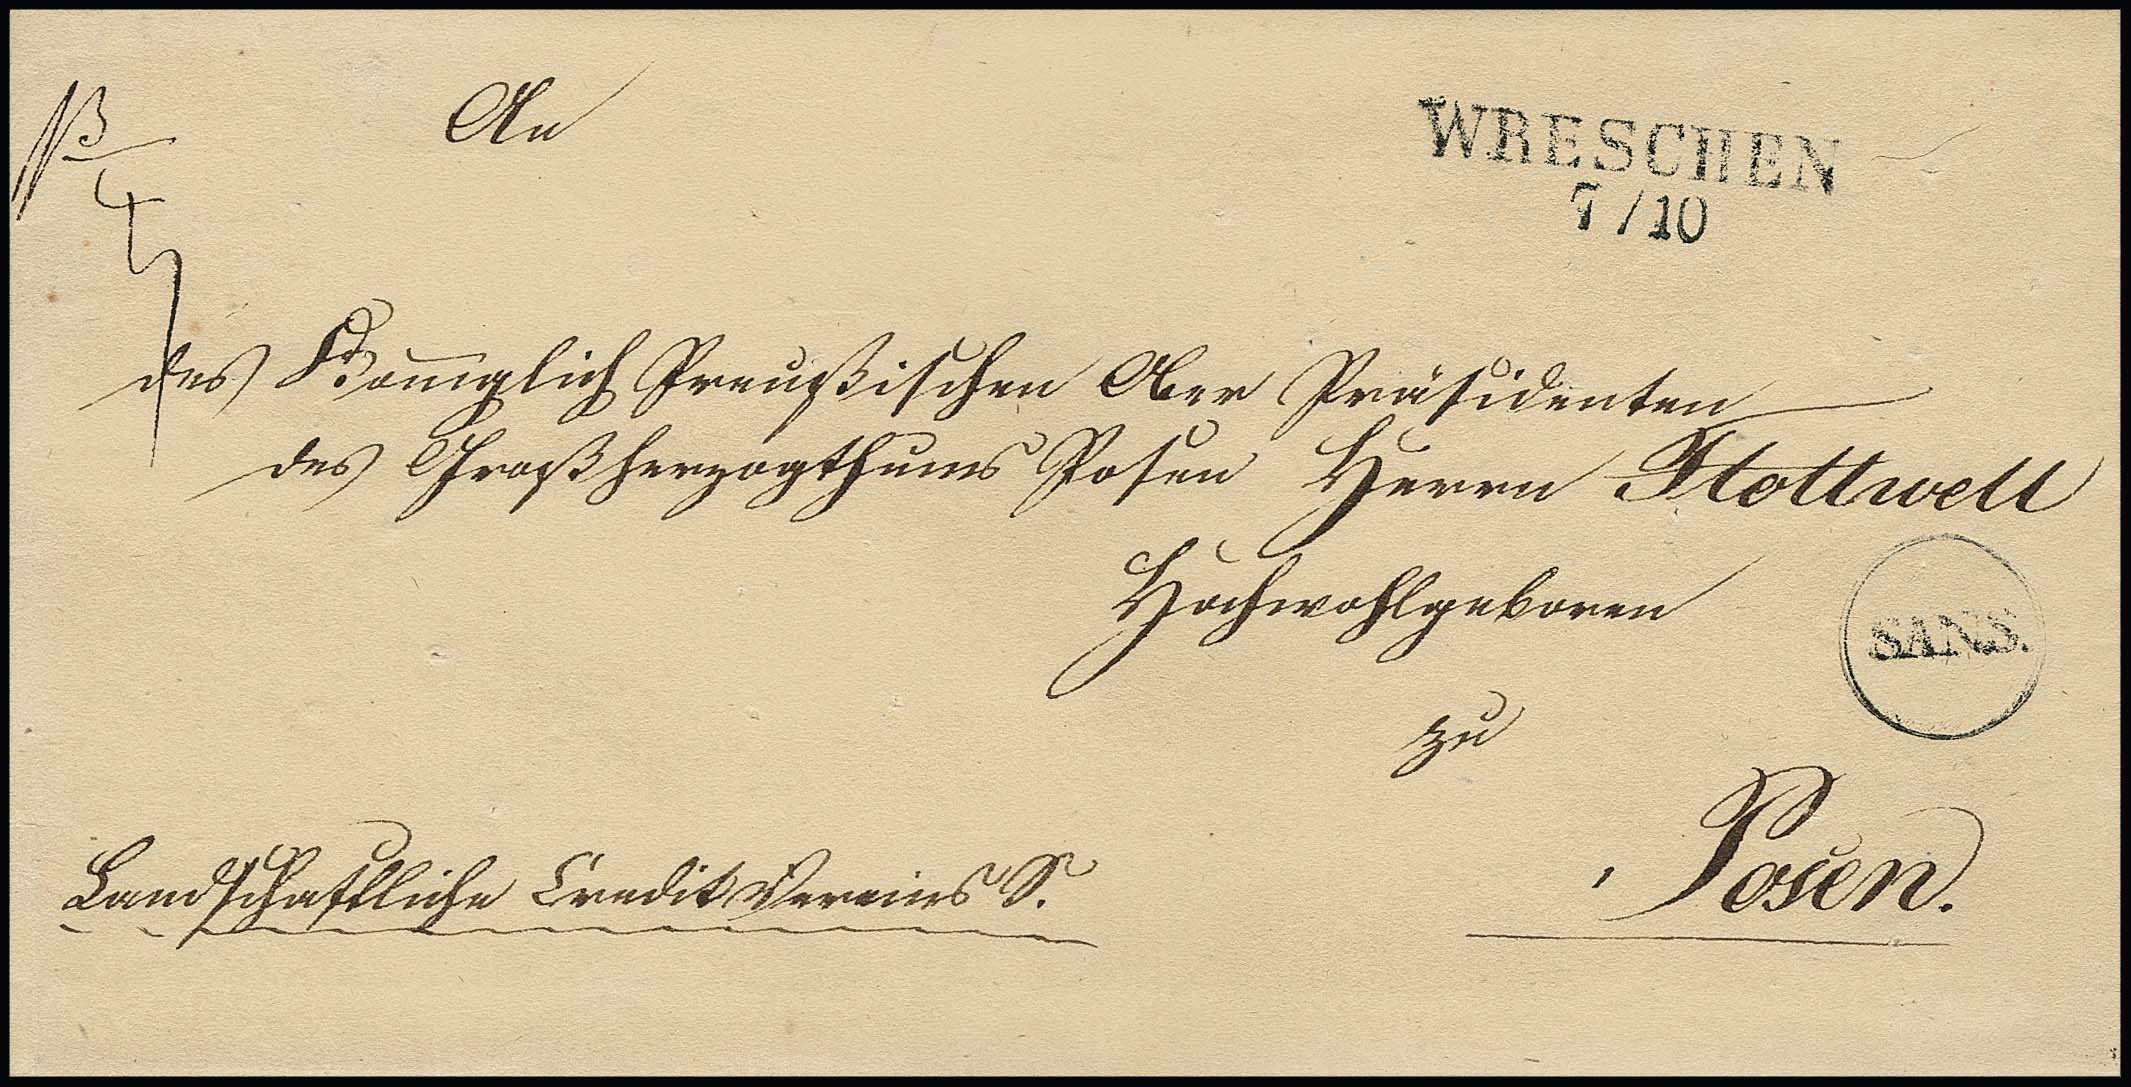 An
WRESCHEN
7/10
des Königlich Preußischen Ober Präsidenten
des Großherzogthums Posen Herrn Flottwell
Hochwohlgeboren
SANS.
zu
Posen.
Landschaftliche Credit Vereins S.